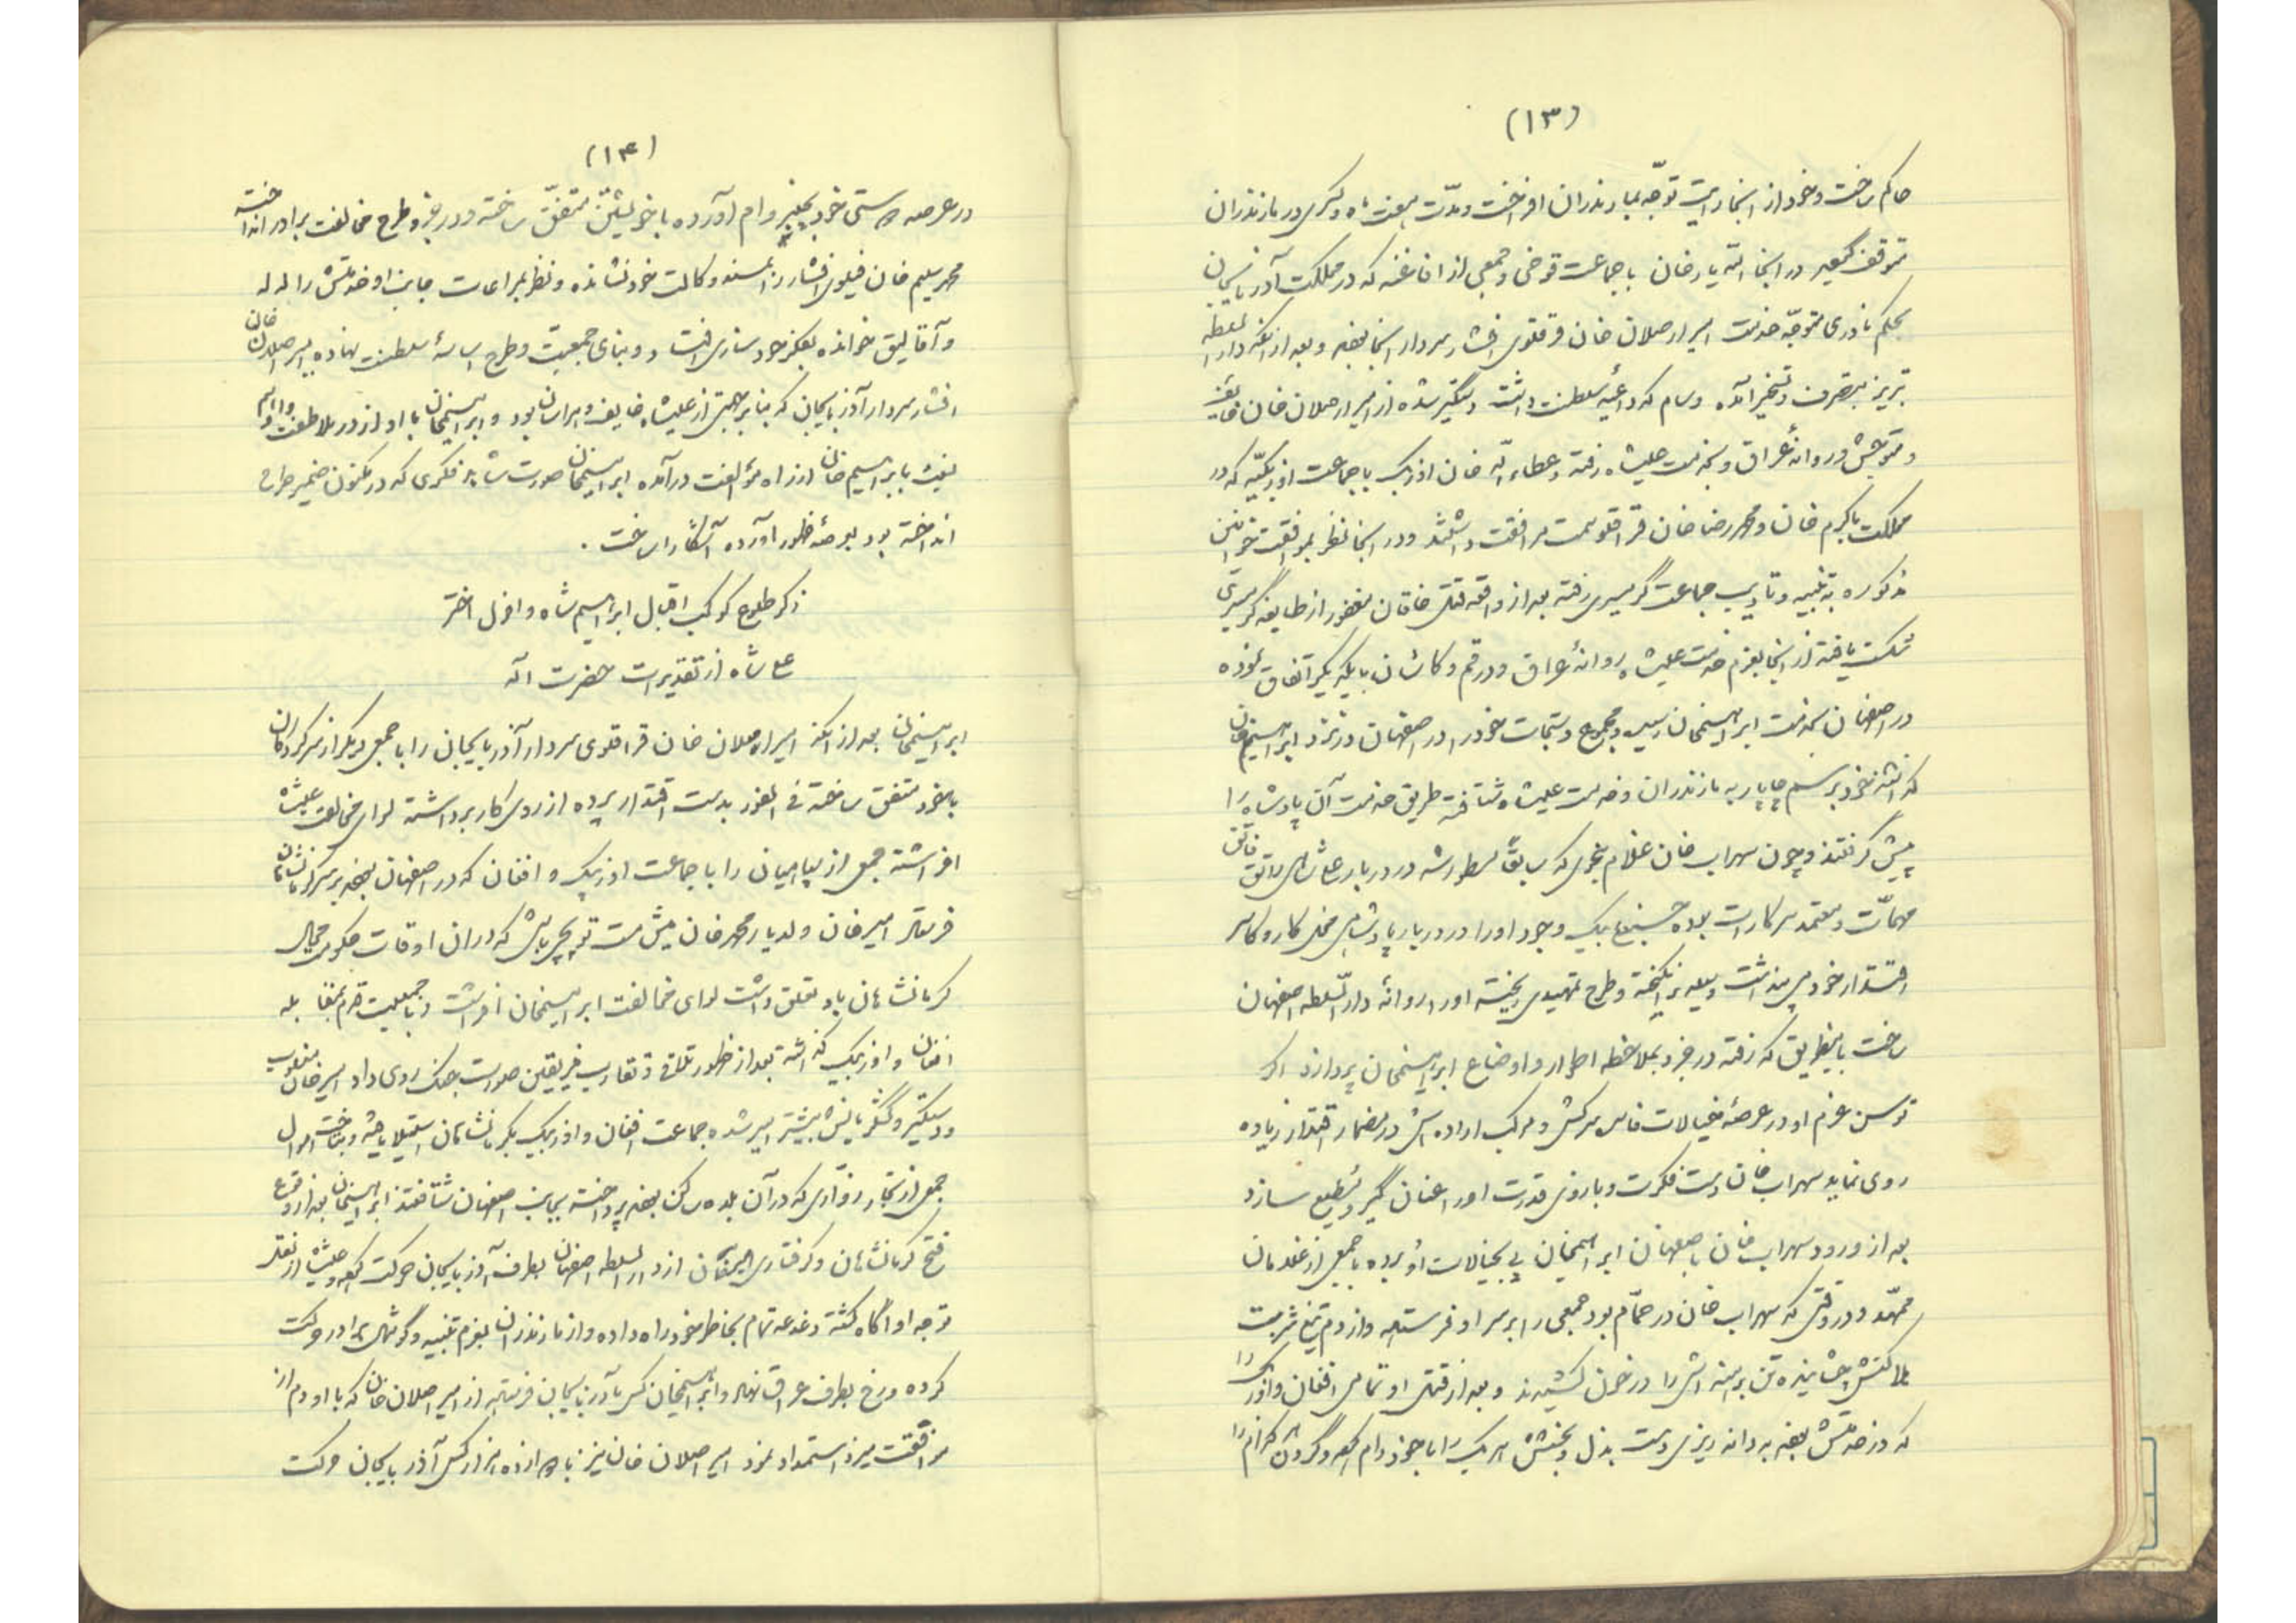 (۱۳)
حاکم ساخت و خود از اینجا رایت توجّه بمازندران افراخت و مدّت هفت ماه و کسری در مازندران
متوقف گردید در اینجا الله یار خان با جماعت قرخی و جمعی از افاغنه که در مملکت آذربایجان
بحکم نادری متوجّه خدمت امیر ارصلان خان قرقلوی افشار سردار اینجا بودند و بعد از آنکه دارالسلطنه
تبریز بتصرف و تسخیر آمده و سام که داعیه سلطنت داشت دستگیر شده از امیر ارصلان خان خایف
و متوحش و روانهٔ عراق و بخدمت علیشاه رفته و عطاءالله خان اوزبک با جماعت اوزبکیّه که در
مملکت باکرم خان و محمد رضا خان قرقلو سمت مرافقت داشتند و در اینجا نظر بموافقت خوانین
مذکوره به تنبیه و تادیب جماعت گرمسیری رفته بعد از واقعه قتل خاقان مغفور از طایفه گرمسیری
شکست یافته از اینجا بعزم خدمت علیشاه روانهٔ عراق و در قم و کاشان با یکدیگر اتفاق نموده
در اصفهان بخدمت ابراهیمخان رسید و مجموع دستجات خود را در اصفهان در نزد ابراهیم خان
گذاشته خود برسم چاپار به مازندران و خدمت علیشاه شتافته طریق خدمت آن پادشاه را
پیش گرفتند و چون سهراب خان غلام بنحوی که سابقاً مسطور شد در دربار علیشاهی راتق فاتق
مهمّات و معتمد سرکارات بود حسینعلی بیک وجود او را در دربار پادشاهی مخل کار و کاسر
اقتدار خود می پنداشت وسیله برانگیخته و طرح تمهیدی ریخته او را روانهٔ دارالسّلطه اصفهان
ساخت باینطریق که رفته در جزو بملاحظه اطوار و اوضاع ابراهیمخان پردازد اگر
توسن عزم او در عرصهٔ خیالات فاسد سرکش و مرکب اراده اش در مضمار اقتدار زیاده
روی نماید سهراب خان بدست فکرت و بازوی قدرت او را عنان گیر و مطیع سازد
بعد از ورود سهراب خان باصفهان ابراهیمخان پی بخیالات او برده با جمعی از غلامان
ممهّد و در وقتی که سهراب خان در حمّام بود جمعی را بر سر او فرستاده و از دم تیغ شربت
هلاکتش چشانیده تن برهنه اش را در خون کشیدند و بعد از قتل او تمامی افغان و اوزبک را
که در خدمتش بودند به دانه ریزی دست بذل و بخشش هر یک را با خود رام کرده و گردن کدام را
(۱۴)
در عرصه هستی خود بکمند وام آورده با خویشتن متفق ساخته و در جزو طرح مخالفت برادر انداخته
محمد سلیم خان فیلوی افشار را بمسند وکالت خود نشانده و نظر بمراعات جانب او خدمتش را لـه لـه
و آقا لیق خوانده بفکر خود سازی افتاد و بنای جمعیّت و طرح اساسهٔ سلطنت نهاده امیر اصلان خان
افشار سردار آذربایجان که بنا بر جهتی از علیشاه خایف و هراسان بود و ابراهیمخان با او از در ملاطفت و
نیز با ابراهیم خان از راه مؤالفت درآمده ابراهیمخان صورت شاهد فکری که در مکنون ضمیر طرح
انداخته بود بعرصهٔ ظهور آورده آشکارا ساخت .
ذکر طلوع کوکب اقبال ابراهیم شاه و افول اختر
علی شاه از تقدیرات حضرت اله
ابراهیمخان بعد از آنکه امیر ارصلان خان قرقلوی سردار آذربایجان را با جمعی دیگر از سرکردگان
با خود متفق ساخته فی الفور بدست اقتدار پرده از روی کار برداشته لوای مخالفت علیشاه
افراشته جمعی از سپاهیان را با جماعت اوزبک و افغان که در اصفهان بودند بر سر کرمانشاهان
فرستاد امیر خان ولد یار محمد خان میش مست توپچی باشی که در آن اوقات حکومت محال
کرمانشاهان باو تعلق داشت لوای مخالفت ابراهیمخان افراشت و با جمعیت تمام بمقابله
افغان و اوزبک گذاشته بعد از ظهور تلاقی و تقارب فریقین صورت جنگ روی داد امیر خان مغلوب
و دستگیر و لشگریانش بیشتر اسیر شده جماعت افغان و اوزبک بکرمانشاهان استیلا یافته و بتاخت اموال
جمعی از تجار و زوّاری که در آن بلده ساکن بودند پرداخته بجانب اصفهان شتافتند ابراهیمخان بعد از وقوع
فتح کرمانشاهان و گرفتاری امیرخان از دارالسلطه اصفهان بطرف آذربایجان حرکت کرده و علیشاه از
توجه او آگاه گشته دغدغه تمام بخاطر خود راه داده و از مازندران بعزم تنبیه و گوشمال برادر حرکت
کرده و رخ بطرف عراق نهاد و ابراهیمخان کس بآذربایجان فرستاده از امیر اصلان خان که با او دم از
موافقت میزد استمداد نمود امیر اصلان خان نیز با دوازده هزار کس آذربایجان حرکت